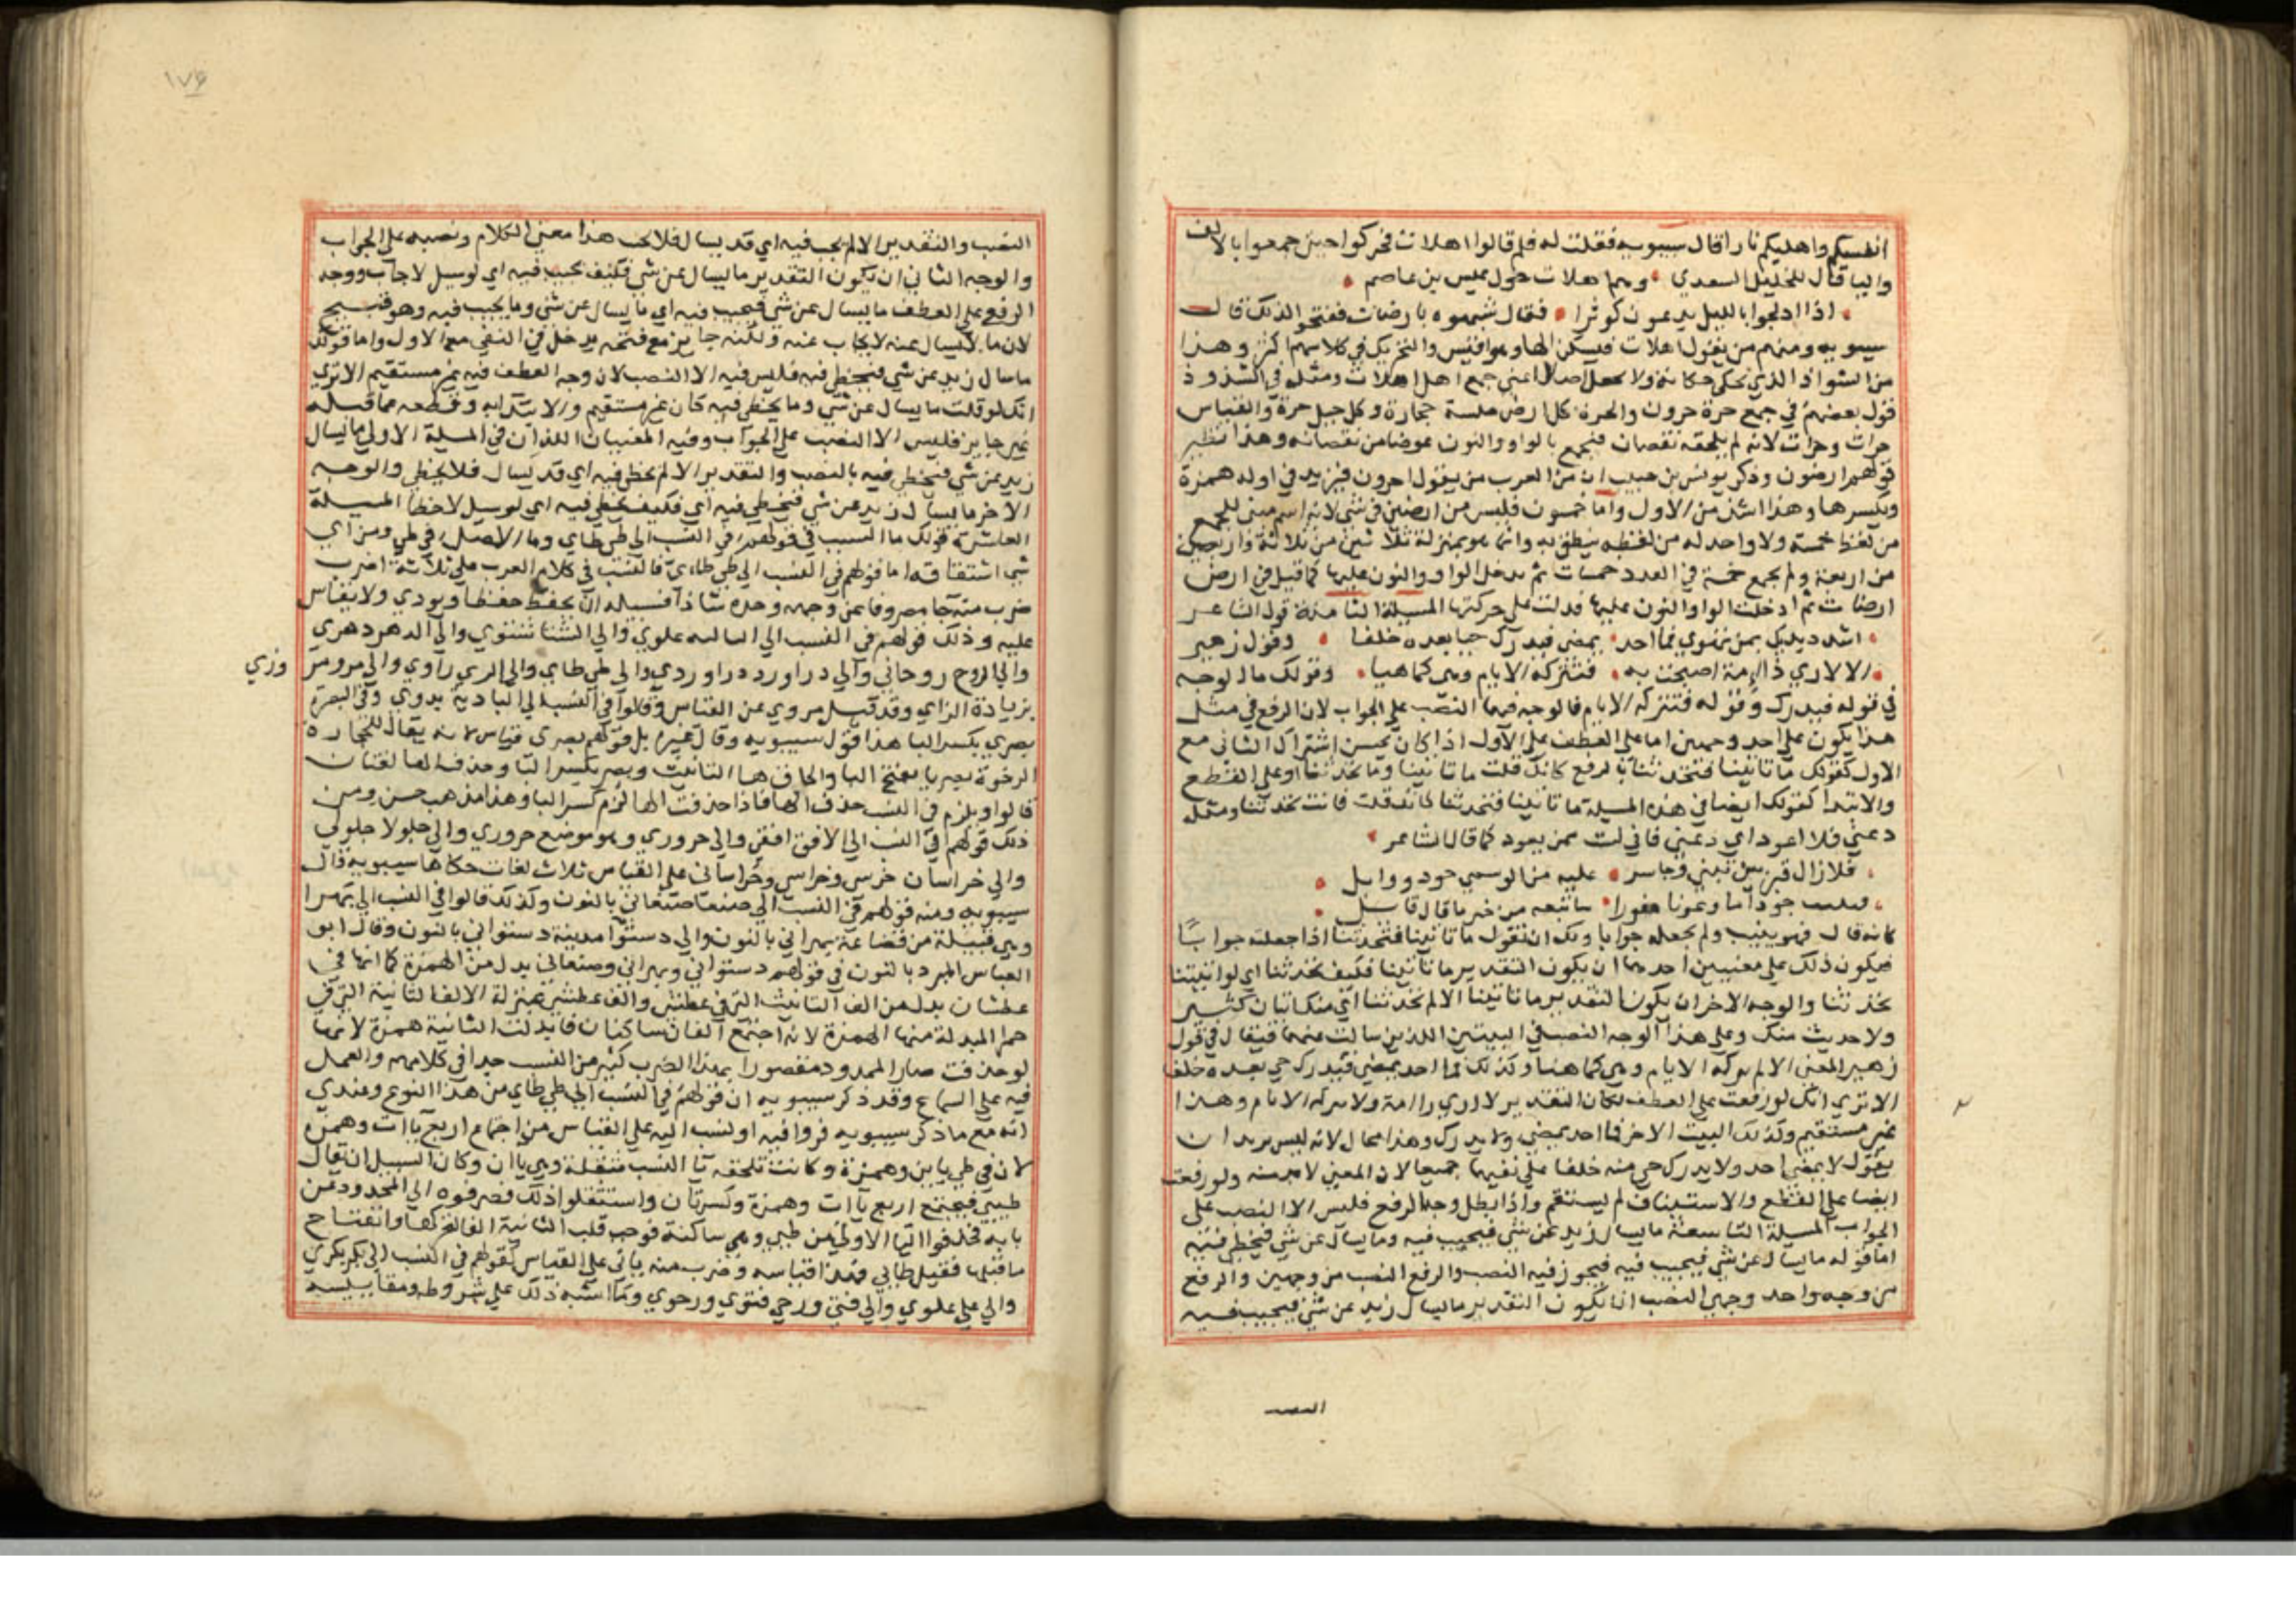 انفسكم واهليكم نارا قال سيبويه فقلت له فلم قالوا اهلات فحركوا حين جمعوا بالالف
واليا قال للخليل السعدي وهم اهلات حول عيس بن عاصم
اذا ادلجوا بالليل يدعون كوثرا فقال شبهوه بارضات ففتحوا لذلك قال
سيبويه ومنهم من يقول اهلات فيسكن الها وهو اقيس والتحريك في كلامهم اكثر وهذا
من الشواذ الذي تحكى حكاية ولا تجعل اصلا اعني جمع اهل اهلات ومثله في الشذوذ
قول بعضهم في جمع حرة حرون والحرة كل ارض ملسة حجارة وكل جبل حرة والقياس
حرات وحرات لانه لم يلحقه نقصان فيجمع بالواو والنون عوضا من نقصانه وهذا نظير
قولهم ارضون وذكر يونس بن حبيب ان من العرب من يقول احرون فيزيد في اوله همزة
ويكسرها وهذا اشذ من الاول واما خمسون فليس من ارضين في شي لانه اسم مبنى للجمع
من لفظ خمسة ولا واحد له من لفظه ينطق به وانما هو بمنزلة ثلاثين من ثلاثة واربعين
من اربعة ولم يجمع خمسة في العدد خمسات ثم يدخل الواو والنون عليها كما قيل في ارض
ارضات ثم ادخلت الواو والنون عليها فدلت على حركتها المسيلة الثامنة قول الشاعر
اشدد يديك بمن تهوي فما احد يمضي فيدرك حيا بعده خلفا وقول زهير
الا لا اري ذا امة اصبحت به فتتركه الايام وهي كما هيا وقولك ما الوجه
في قوله فيدرك وقوله فتتركه الايام فالوجه فيهما النصب على الجواب لان الرفع في مثل
هذا يكون على احد وجهين اما على العطف على الاول اذا كان يحسن اشتراك الثاني مع
الاول كقولك ما تاتينا فتحدثنا بالرفع كانك قلت ما تاتينا وما تحدثنا او على القطع
والابتدا كقولك ايضا في هذه المسيلة ما تاتينا فتحدثنا كانك قلت فانت تحدثنا ومثله
دعني فلا اعود اي دعني فاني لست ممن يعود كما قال الشاعر
فلا زال قبر بين تبني وجاسر عليه من الوسمي جود ووابل
فينبت حوذانا وعوفا منورا ساتبعه من خير ما قال قايل
كانه قال فهو ينبت ولم يجعله جوابا ولك ان تقول ما تاتينا فتحدثنا اذا جعلته جوابا
فيكون ذلك على معنيين احدهما ان يكون التقدير ما تاتينا فكيف تحدثنا اي لو اتيتنا
تحدثنا والوجه الاخر ان يكون التقدير ما تاتينا الا لم تحدثنا اي منك اتيان كثير
ولا حديث منك وعلى هذا الوجه النصب في البيتين اللذين سالت عنهما فيقال في قول
زهير المعنى الا لم تتركه الايام وهي كما هيا وكذلك فما احد يمضي فيدرك حي بعده خلفا
الا تري انك لو رفعت على العطف لكان التقدير لا اري ذا امة ولا تتركه الايام وهذا
غير مستقيم وكذلك البيت الاخر فما احد يمضي ولا يدرك وهذا محال لانه ليس يريد ان
يقول لا يمضي احد ولا يدرك حي منه خلفا على نفيهما جميعا لان المعنى لا هو منه ولو رفعت
ايضا على القطع والاستيناف لم يستقم واذا بطل وجها الرفع فليس الا النصب على
الجواب المسيلة التاسعة ما يسال زيد عن شي فيجيب فيه وما يسال عن شي فيخطي فيه
اما قوله ما يسال عن شي فيجيب فيه فيجوز فيه النصب والرفع النصب من وجهين والرفع
من وجه واحد وجهي النصب اما ان يكون التقدير ما يسال زيد عن شي فيجيب فيه
النصب
١٧٦
النصب والتقدير الا لم يجب فيه اي قد يسال فلا يجب هذا معنى الكلام ونصبه على الجواب
والوجه الثاني ان يكون التقدير ما يسال عن شي فكيف يجيب فيه اي لو سيل لاجاب ووجه
الرفع على العطف ما يسال عن شي فيجيب فيه اي ما يسال عن شي وما يجيب فيه وهو قبيح
لان ما لا يسال عنه لا يجاب عنه ولكنه جايز مع قبحه يدخل في النفي مع الاول واما قولك
ما سال زيد عن شي فيخطي فيه فليس فيه الا النصب لان وجه العطف فيه غير مستقيم الا تري
انك لو قلت ما يسال عن شي وما يخطي فيه كان غير مستقيم والابتدا به وقطعه مما قبله
غير جايز فليس الا النصب على الجواب وفيه المعنيان اللذان في المسيلة الاولى ما يسال
زيد عن شي فيخطي فيه بالنصب والتقدير الا لم يخط فيه اي قد يسال فلا يخطي والوجه
الاخر ما يسال زيد عن شي فيخطي فيه اي فكيف يخطي فيه اي لو سيل لاخطا المسيلة
العاشرة قولك ما السبب في قولهم في النسب الى طي طاي وما الاصل في طي ومن اي
شي اشتقاقه اما قولهم في النسب الى طي طاءي فالنسب في كلام العرب على ثلاثة اضرب
ضرب منه جا مصروفا عن وجهه وحده شاذا فسبيله ان يحفظ حفظا ويودي ولا يقاس
عليه وذلك قولهم في النسب الى العالية علوي والى الشتا شتوي والى الدهر دهري
والى الروح روحاني والى دراورد دراوردي والى طي طاي والى الري رازي والى مرو مروزي
بزيادة الزاي وقد قيل مروي عن القياس وقالوا في النسب الى البادية بدوي وفي البصرة
بصري بكسر البا هذا قول سيبويه وقال غيره بل قولهم بصري قياس لانه يقال للحجارة
الرخوة بصر يا بفتح البا والحاق ها التانيث وبصر بكسر البا وحذف الها لغتان
قالوا ويلزم في النسب حذف الها فاذا حذفت الها لزم كسر البا وهذا مذهب حسن ومن
ذلك قولهم في النسب الى الافق افقي والى حروري وهو موضع حروري والى جلولا جلولي
والى خراسان خرسي وخراسي وخراساني على القياس ثلاث لغات حكاها سيبويه قال
سيبويه ومنه قولهم في النسب الى صنعا صنعاني بالنون وكذلك قالوا في النسب الى بهرا
وهي قبيلة من قضاعة بهراني بالنون والى دستوا مدينة دستواني بالنون وقال ابو
العباس المبرد بالنون في قولهم دستواني وبهراني وصنعاني بدل من الهمزة كما انها في
عطشان بدل من الف التانيث التي في عطشى والف عطشى بمنزلة الالف الثانية التي في
حمرا المبدلة منها الهمزة لانه اجتمع الفان ساكنان فابدلت الثانية همزة لانها
لو حذفت صار الممدود مقصورا بهذا الضرب كثير من النسب جدا في كلامهم والعمل
فيه على السماع وقد ذكر سيبويه ان قولهم في النسب الى طي طاي من هذا النوع وعندي
انه مع ما ذكر سيبويه فروا فيه او نسب اليه على القياس من اجتماع اربع ياات وهمزة
لان في طي ياين وهمزة وكانت تلحقه يا النسب مثقلة وهي ياان وكان السبيل ان يقال
طييي فيجتمع اربع ياات وهمزة وكسرتان واستثقلوا ذلك فصرفوه الى المحدود عن
بابه فحذفوا اليا الاولى من طيي وهي ساكنة فوجب قلب الثانية الفا لتحركها وانفتاح
ما قبلها فقيل طايي فهذا قياسه وضرب منه ياتي على القياس كقولهم في النسب الى بكر بكري
والى علي علوي والى فتى ورحى فتوي ورحوي وما اشبه ذلك على شروطه ومقاييسه